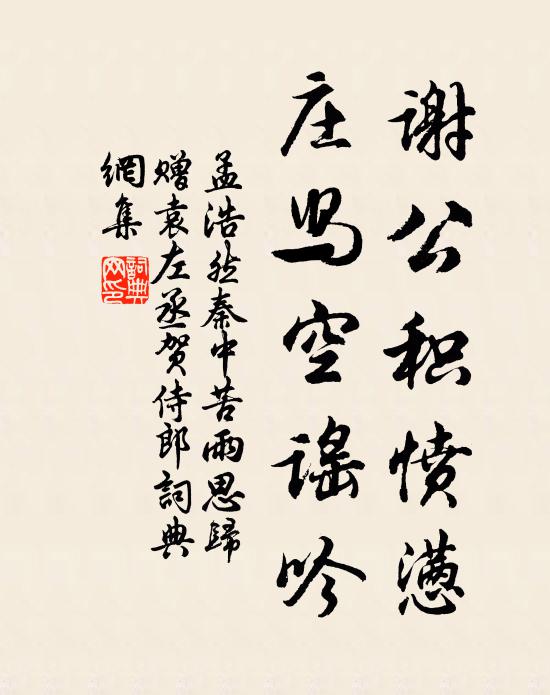 谢公积愤懑
庄舄空谣吟
孟浩然秦中苦雨思歸
赠袁左丞贺侍郎詞典
網集
詞典
网印